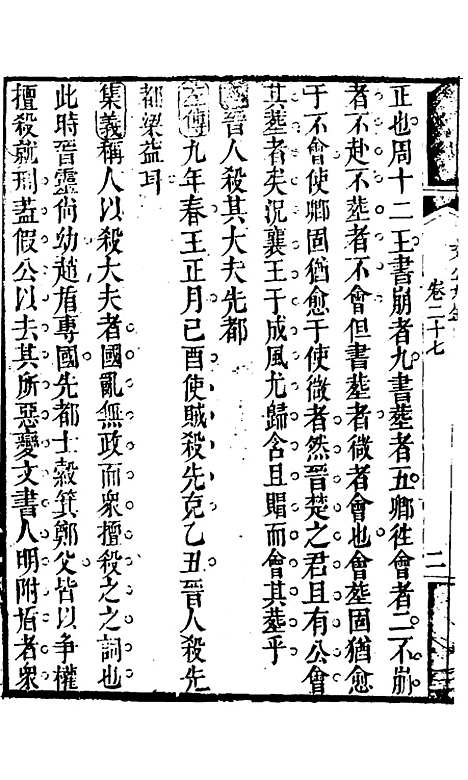 文公九年
卷二十七
二
正也周十二王書崩者九書葬者五卿往會者二不崩
者不赴不葬者不會但書葬者微者會也會葬固猶愈
于不會使卿固猶愈于使微者然晉楚之君且有公會
其葬者矣況襄王于成風尤歸含且賵而會其葬乎
經晉人殺其大夫先都
左傳九年春王正月己酉使賊殺先克乙丑晉人殺先
都梁益耳
集義稱人以殺大夫者國亂無政而衆擅殺之之詞也
此時晉靈尙幼趙盾專國先都士縠箕鄭父皆以爭權
擅殺就刑蓋假公以去其所惡變文書人明附盾者衆